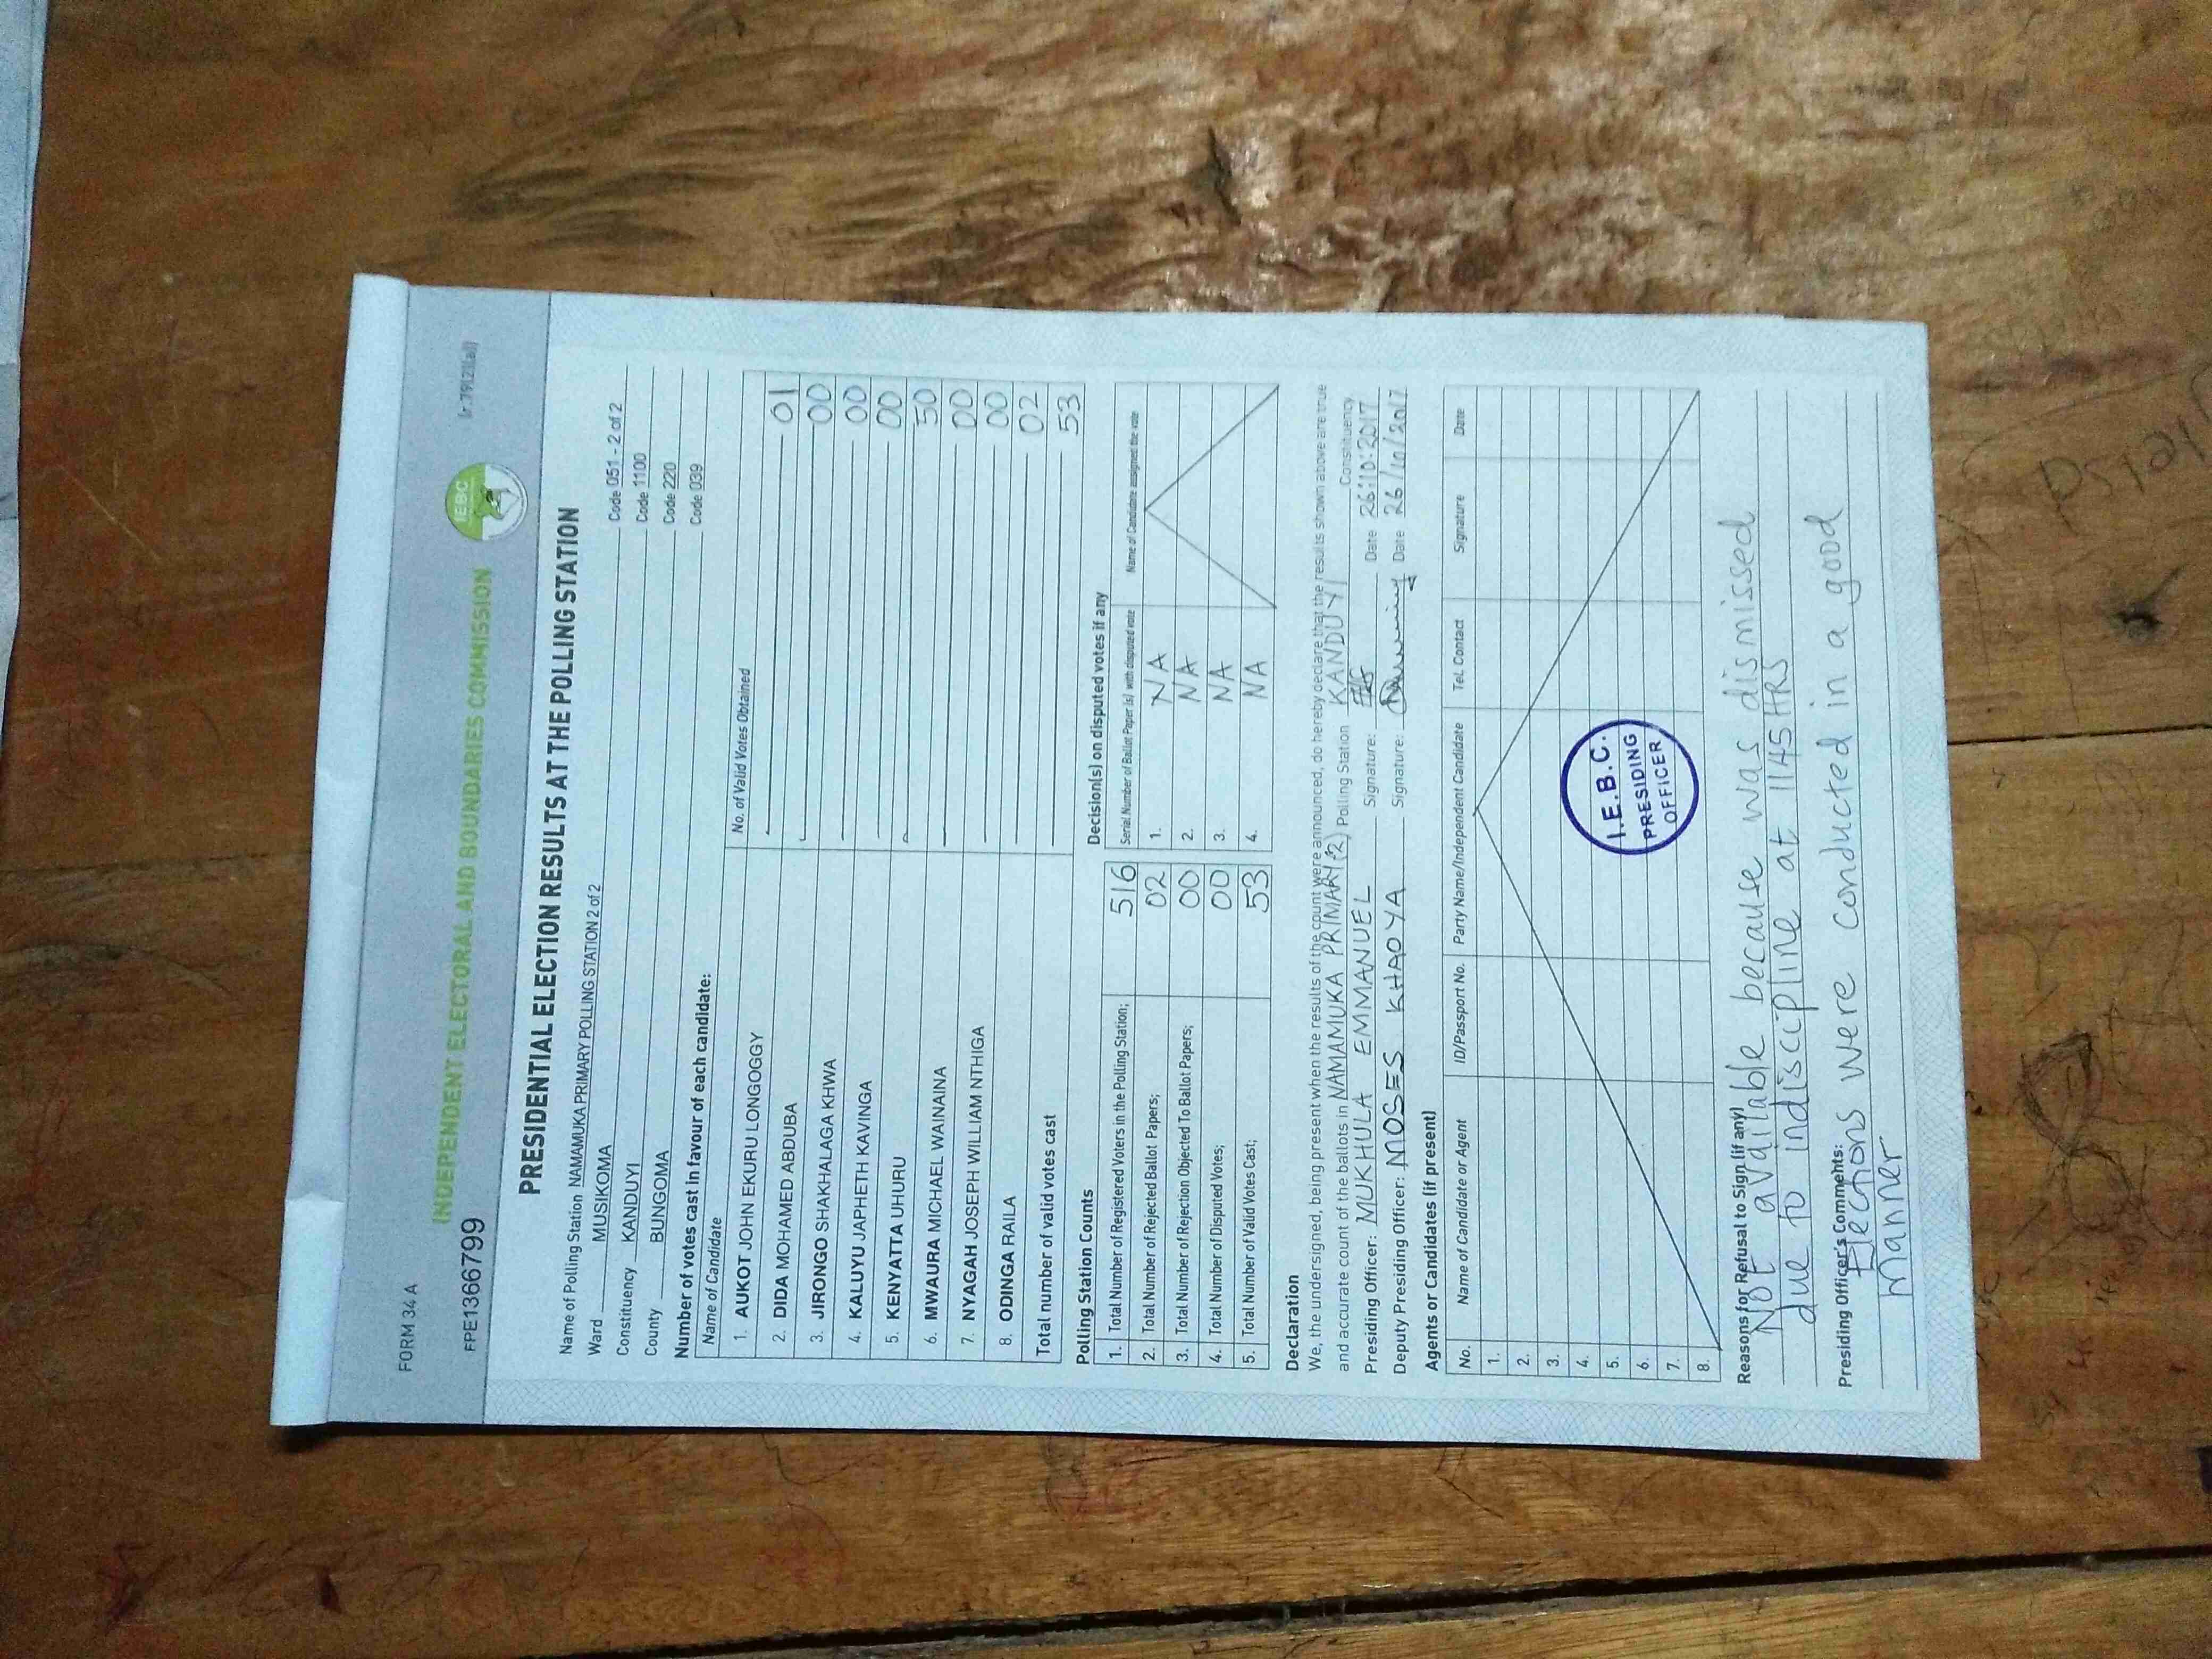 FORM 34 A
INDEPENDENT ELECTORAL AND BOUNDARIES COMMISSION
IEBC
(r.79(2)(a))
FPE1366799
PRESIDENTIAL ELECTION RESULTS AT THE POLLING STATION
Name of Polling Station NAMAMUKA PRIMARY POLLING STATION 2 of 2 Code 051 - 2 of 2
Ward MUSIKOMA Code 1100
Constituency KANDUYI Code 220
County BUNGOMA Code 039
Number of votes cast in favour of each candidate:
Name of Candidate No. of Valid Votes Obtained
1. AUKOT JOHN EKURU LONGOGGY 01
2. DIDA MOHAMED ABDUBA 00
3. JIRONGO SHAKHALAGA KHWA 00
4. KALUYU JAPHETH KAVINGA 00
5. KENYATTA UHURU 50
6. MWAURA MICHAEL WAINAINA 00
7. NYAGAH JOSEPH WILLIAM NTHIGA 00
8. ODINGA RAILA 02
Total number of valid votes cast 53
Polling Station Counts
1. Total Number of Registered Voters in the Polling Station; 516
2. Total Number of Rejected Ballot Papers; 02
3. Total Number of Rejection Objected To Ballot Papers; 00
4. Total Number of Disputed Votes; 00
5. Total Number of Valid Votes Cast; 53
Decision(s) on disputed votes if any
Serial Number of Ballot Paper (s) with disputed vote Name of Candidate assigned the vote
1. NA
2. NA
3. NA
4. NA
Declaration
We, the undersigned, being present when the results of the count were announced, do hereby declare that the results shown above are true
and accurate count of the ballots in NAMAMUKA PRIMARY (2) Polling Station KANDUYI Constituency
Presiding Officer: MUKHULA EMMANUEL Signature: Date 26:10:2017
Deputy Presiding Officer: MOSES KHAOYA Signature: Date 26/10/2017
Agents or Candidates (if present)
No. Name of Candidate or Agent ID/Passport No. Party Name/Independent Candidate Tel. Contact Signature Date
1.
2.
3.
4.
5.
6.
7.
8.
I.E.B.C.
PRESIDING
OFFICER
Reasons for Refusal to Sign (if any)
Not available because was dismissed
due to indiscipline at 1145 HRS
Presiding Officer's Comments:
Elections were conducted in a good
manner